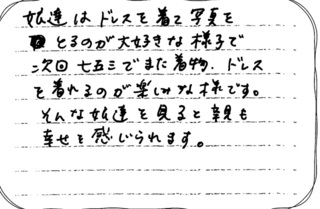 娘達はドレスを着て写真を
とるのが大好きな様子で
次回七五三でまた着物、ドレス
を着れるのが楽しみな様です。
そんな娘達を見ると親も
幸せを感じられます。